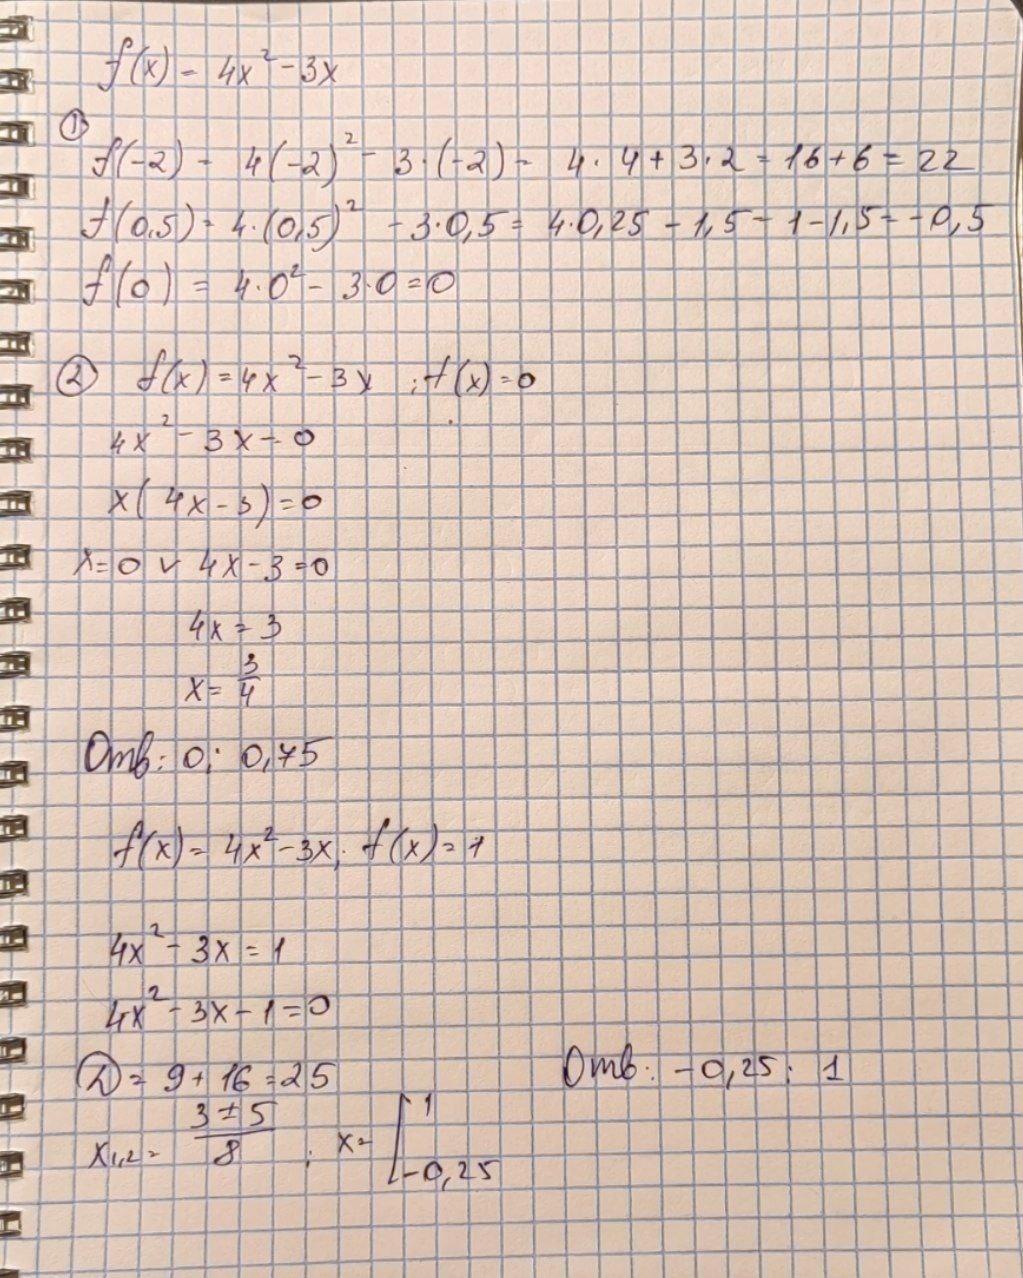 f(x) = 4x² - 3x
①
f(-2) = 4(-2)² - 3·(-2) = 4·4+3·2 = 16+6 = 22
f(0,5) = 4·(0,5)² - 3·0,5 = 4·0,25 - 1,5 = 1-1,5 = -0,5
f(0) = 4·0² - 3·0 = 0
② f(x) = 4x² - 3x ; f(x) = 0
4x² - 3x = 0
x(4x - 3) = 0
x = 0 v 4x - 3 = 0
4x = 3
x = 3/4
Отв: 0; 0,75
f(x) = 4x² - 3x; f(x) = 1
4x² - 3x = 1
4x² - 3x - 1 = 0
D = 9 + 16 = 25
x₁,₂ = (3 ± 5)/8 ; x = [ 1
-0,25
Отв: -0,25; 1